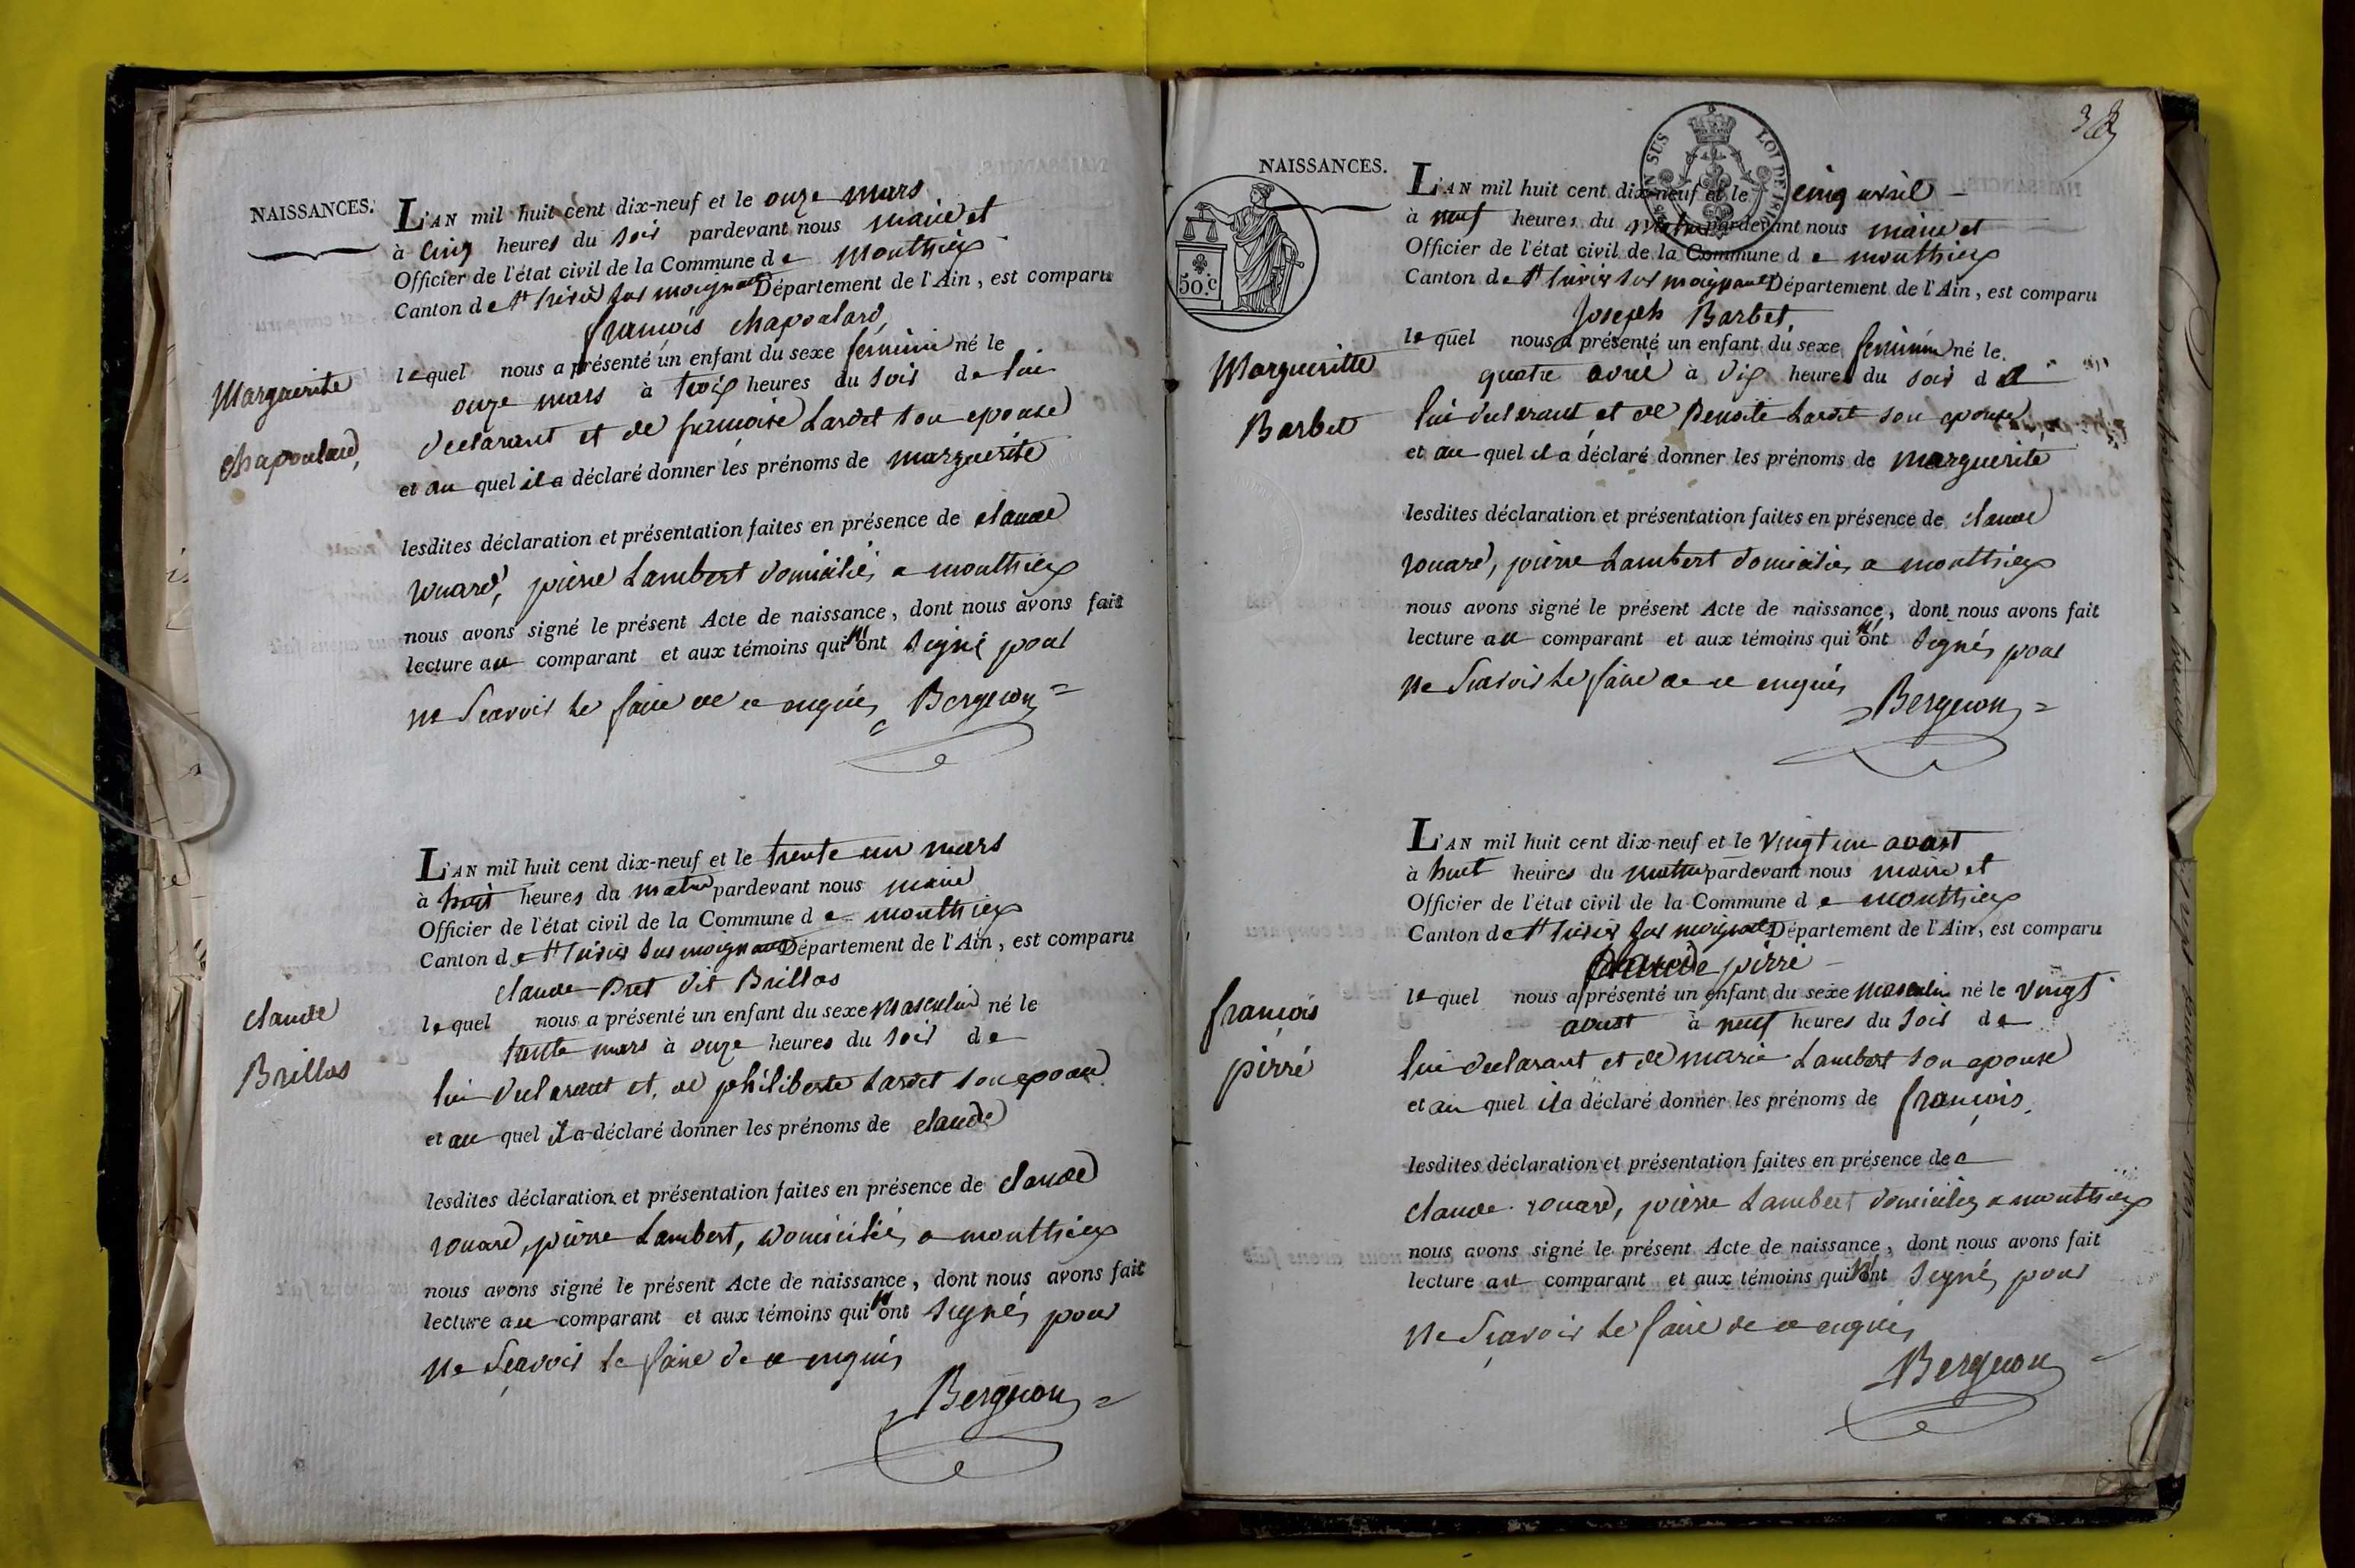 NAISSANCES.
L'AN mil huit cent dix-neuf et le onze mars
à cinq heures du soir pardevant nous maire et
Officier de l'état civil de la Commune de Monthieux
Canton de St trivier sur moignans Département de l'Ain, est comparu
françois chapoulard
lequel nous a présenté un enfant du sexe feminin né le
onze mars à trois heures du soir de lui
declarant et de françoise Lardet son epouse
et au quel il a déclaré donner les prénoms de marguerite
Marguerite
chapoulard,
lesdites déclaration et présentation faites en présence de claude
rouard, pierre Lambert domiciliés a monthieux
nous avons signé le présent Acte de naissance, dont nous avons fait
lecture au comparant et aux témoins qui n'ont signé pour
ne sçavoir le faire de ce enquis Bergeron
L'AN mil huit cent dix-neuf et le trente un mars
à huit heures du matin pardevant nous maire
Officier de l'état civil de la Commune de monthieux
Canton de St trivier sur moignans Département de l'Ain, est comparu
claude Pret dit Brillas
lequel nous a présenté un enfant du sexe masculin né le
trente mars à onze heures du soir de
lui declarant et de philiberte Lardet son epouse
et au quel il a déclaré donner les prénoms de claude
claude
Brillas
lesdites déclaration et présentation faites en présence de claude
rouard, pierre Lambert, domiciliés a monthieux
nous avons signé le présent Acte de naissance, dont nous avons fait
lecture au comparant et aux témoins qui n'ont signés pour
ne sçavoir le faire de ce enquis
Bergeron
NAISSANCES.
50. c
SUS LOI DE
L'AN mil huit cent dix-neuf et le cinq avril
à neuf heures du matin pardevant nous maire et
Officier de l'état civil de la Commune de monthieux
Canton de St trivier sur moignans Département de l'Ain, est comparu
Joseph Barbet
lequel nous a présenté un enfant du sexe feminin né le
quatre avril à dix heures du soir de
lui declarant et de Benoite Lardet son epouse
et au quel il a déclaré donner les prénoms de marguerite
Margueritte
Barbet
lesdites déclaration et présentation faites en présence de claude
rouard, pierre Lambert domiciliés a monthieux
nous avons signé le présent Acte de naissance, dont nous avons fait
lecture au comparant et aux témoins qui n'ont signés pour
ne sçavoir le faire de ce enquis
Bergeron
L'AN mil huit cent dix-neuf et le vingt un avust
à huit heures du matin pardevant nous maire et
Officier de l'état civil de la Commune de monthieux
Canton de St trivier sur moignans Département de l'Ain, est comparu
claude pirré
lequel nous a présenté un enfant du sexe masculin né le vingt
avust à neuf heures du soir de
lui declarant et de marie Lambert son epouse
et au quel il a déclaré donner les prénoms de françois
françois
pirré
lesdites déclaration et présentation faites en présence de
claude rouard, pierre Lambert domiciliés a monthieux
nous avons signé le présent Acte de naissance, dont nous avons fait
lecture au comparant et aux témoins qui n'ont signé pour
ne sçavoir le faire de ce enquis
Bergeron